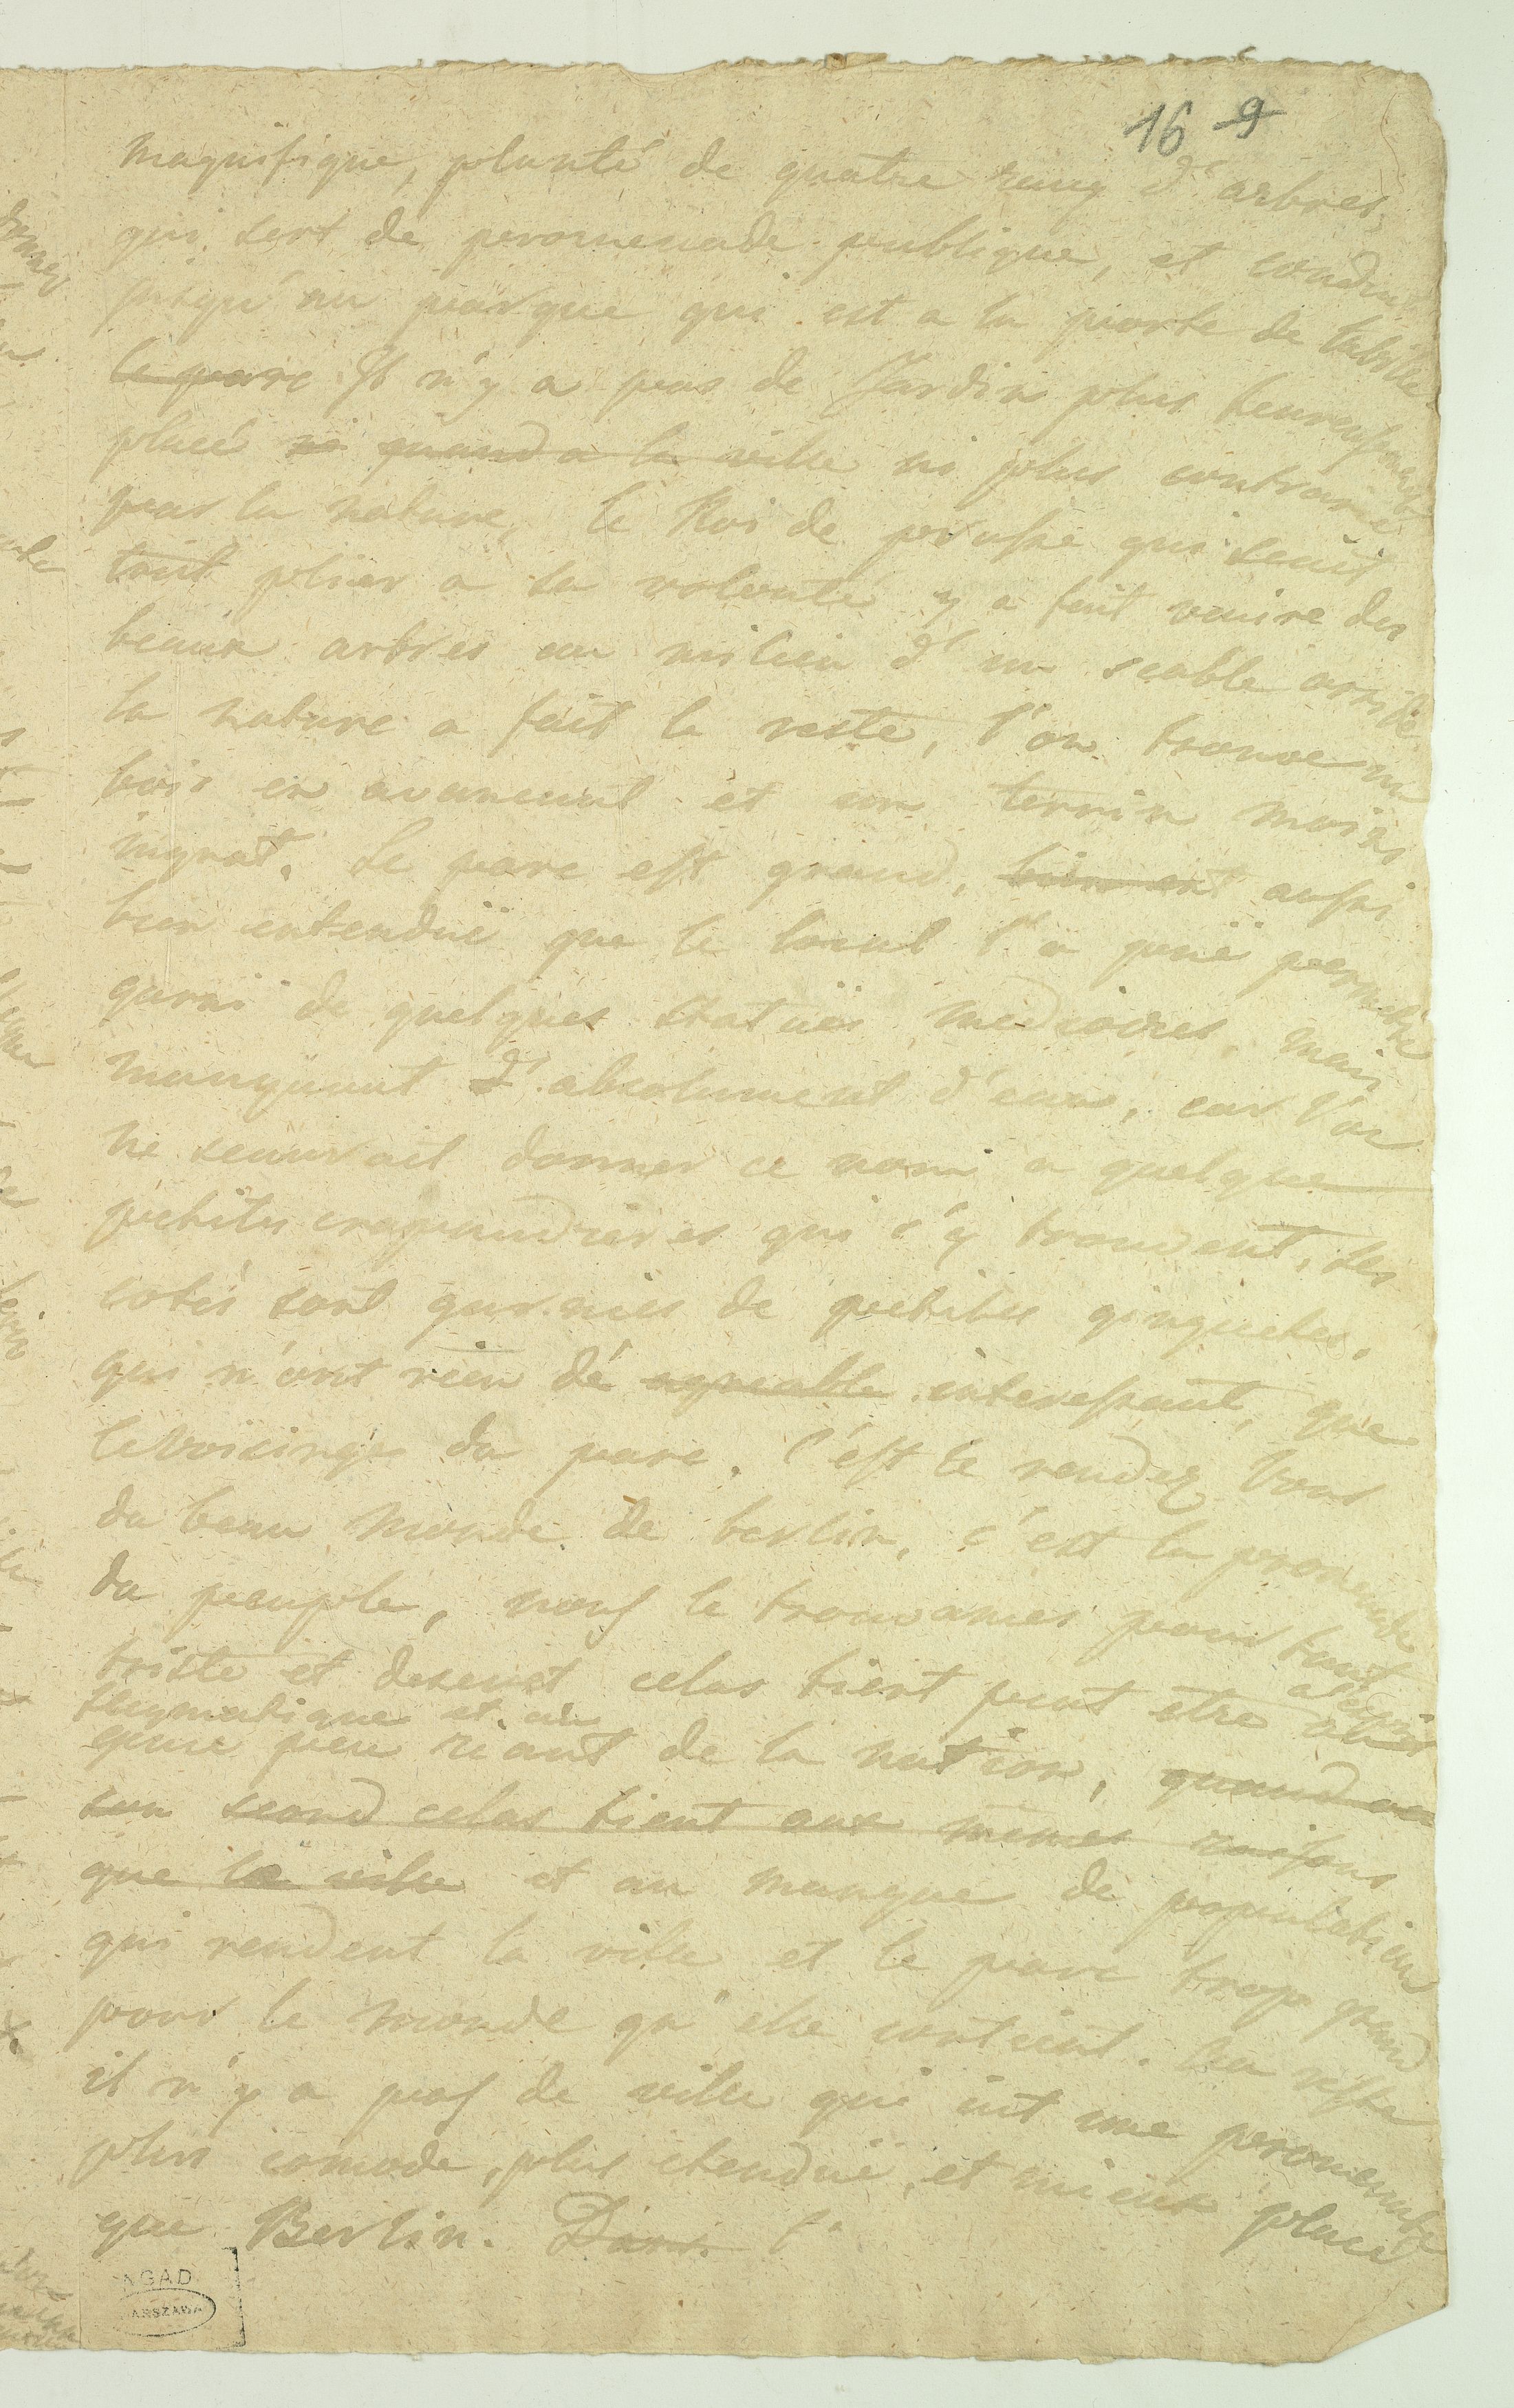 16 9
magnifique, planté de quatre rang d'arbres,
qui sert de peromenade publique, et conduit
jusqu'au parque qui est a la porte de la ville
le parc Il n'y a pas de Jardin plus heureusement
placé ni quand a la ville ni plus contrarié
par la nature, le Roi de prusse qui scait
tout plier a sa volonté y a fait venire des
beaux arbres au milieu d'un scable aride
la nature a fait le reste, l'on trouve un
bois en avancent et un terrin moins
ingrat. Le parc est grand, bien ent aussi
bien entenduë que le local l'a puë permetre
garni de quelques statuës mediocres, mais
manquant d'absolument d'eau, car l'on
ne scauroit donner ce nom a quelque
petites crapaudieres qui s'y trouvent, les
cotés sont garnies de petites ginguetes,
qui n'ont rien de agreable interessant, que
le voisinge du parc. C'est le rendez vous
du beau monde de berlin, c'est la promenade
du peuple, nous le trouvames pour tant
triste et desert celas tient peut etre au
flegmatique et au
genie peu riant de la nation, quand au
son scond celas tient aux mêmes raisons
que la ville et au manque de population
qui rendent la ville et le parc trop grand
pour le monde qu'elle contient. Au reste
il n'y a pas de ville qui ait une peromenade
plus comode, plus etenduë, et mieux placé
que Berlin. Dans l'
AGAD
WARSZAWA